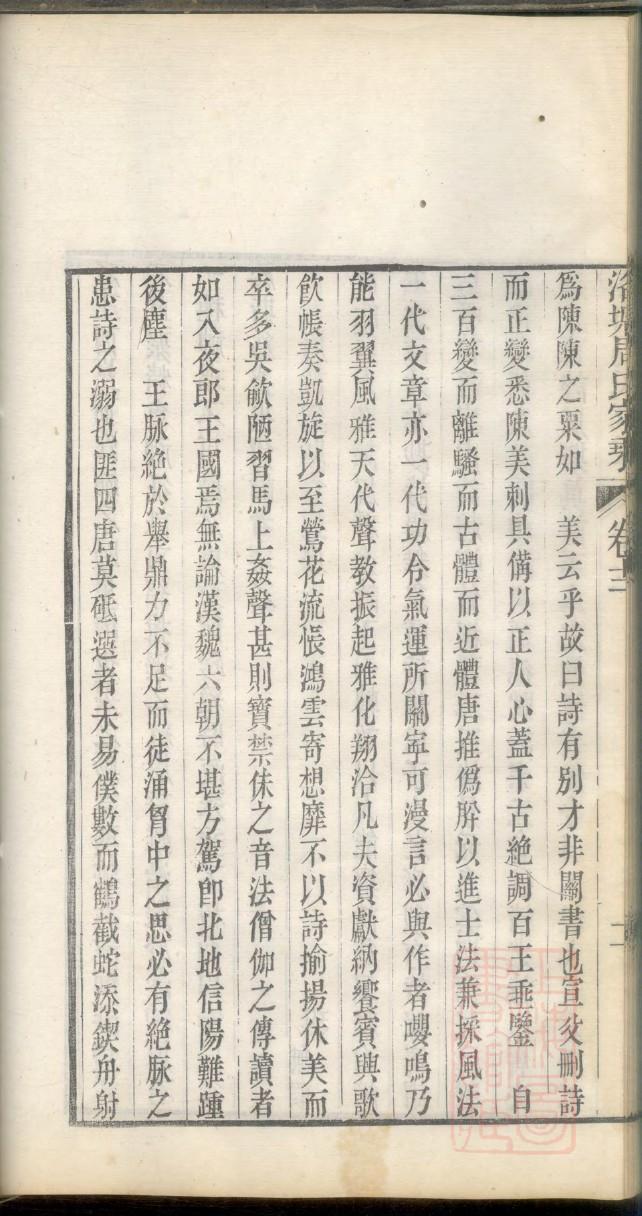 洛塘周氏家乘 卷十二 二
為陳陳之粟如　美云乎故曰詩有別才非關書也宣父刪詩
而正變悉陳美刺具備以正人心蓋千古絕調百王乖鑒　自
三百變而離騷而古體而近體唐推僞胖以進士法兼採風法
一代文章亦一代功令氣運所關寧可漫言必與作者嚶鳴乃
能羽翼風雅天代聲教振起雅化翔洽凡夫資獻納饗賓與歌
飲帳奏凱旋以至鶯花流悵鴻雲寄想靡不以詩揄揚休美而
卒多吳歈陋習馬上姦聲甚則寶禁佅之音法僧伽之傳讀者
如入夜郎王國焉無論漢魏六朝不堪方駕卽北地信陽難踵
後塵　王脉絕於舉鼎力不足而徒涌胷中之思必有絕脉之
患詩之溺也匪四唐莫砥選者未易僕數而鶴截蛇添鍥舟射